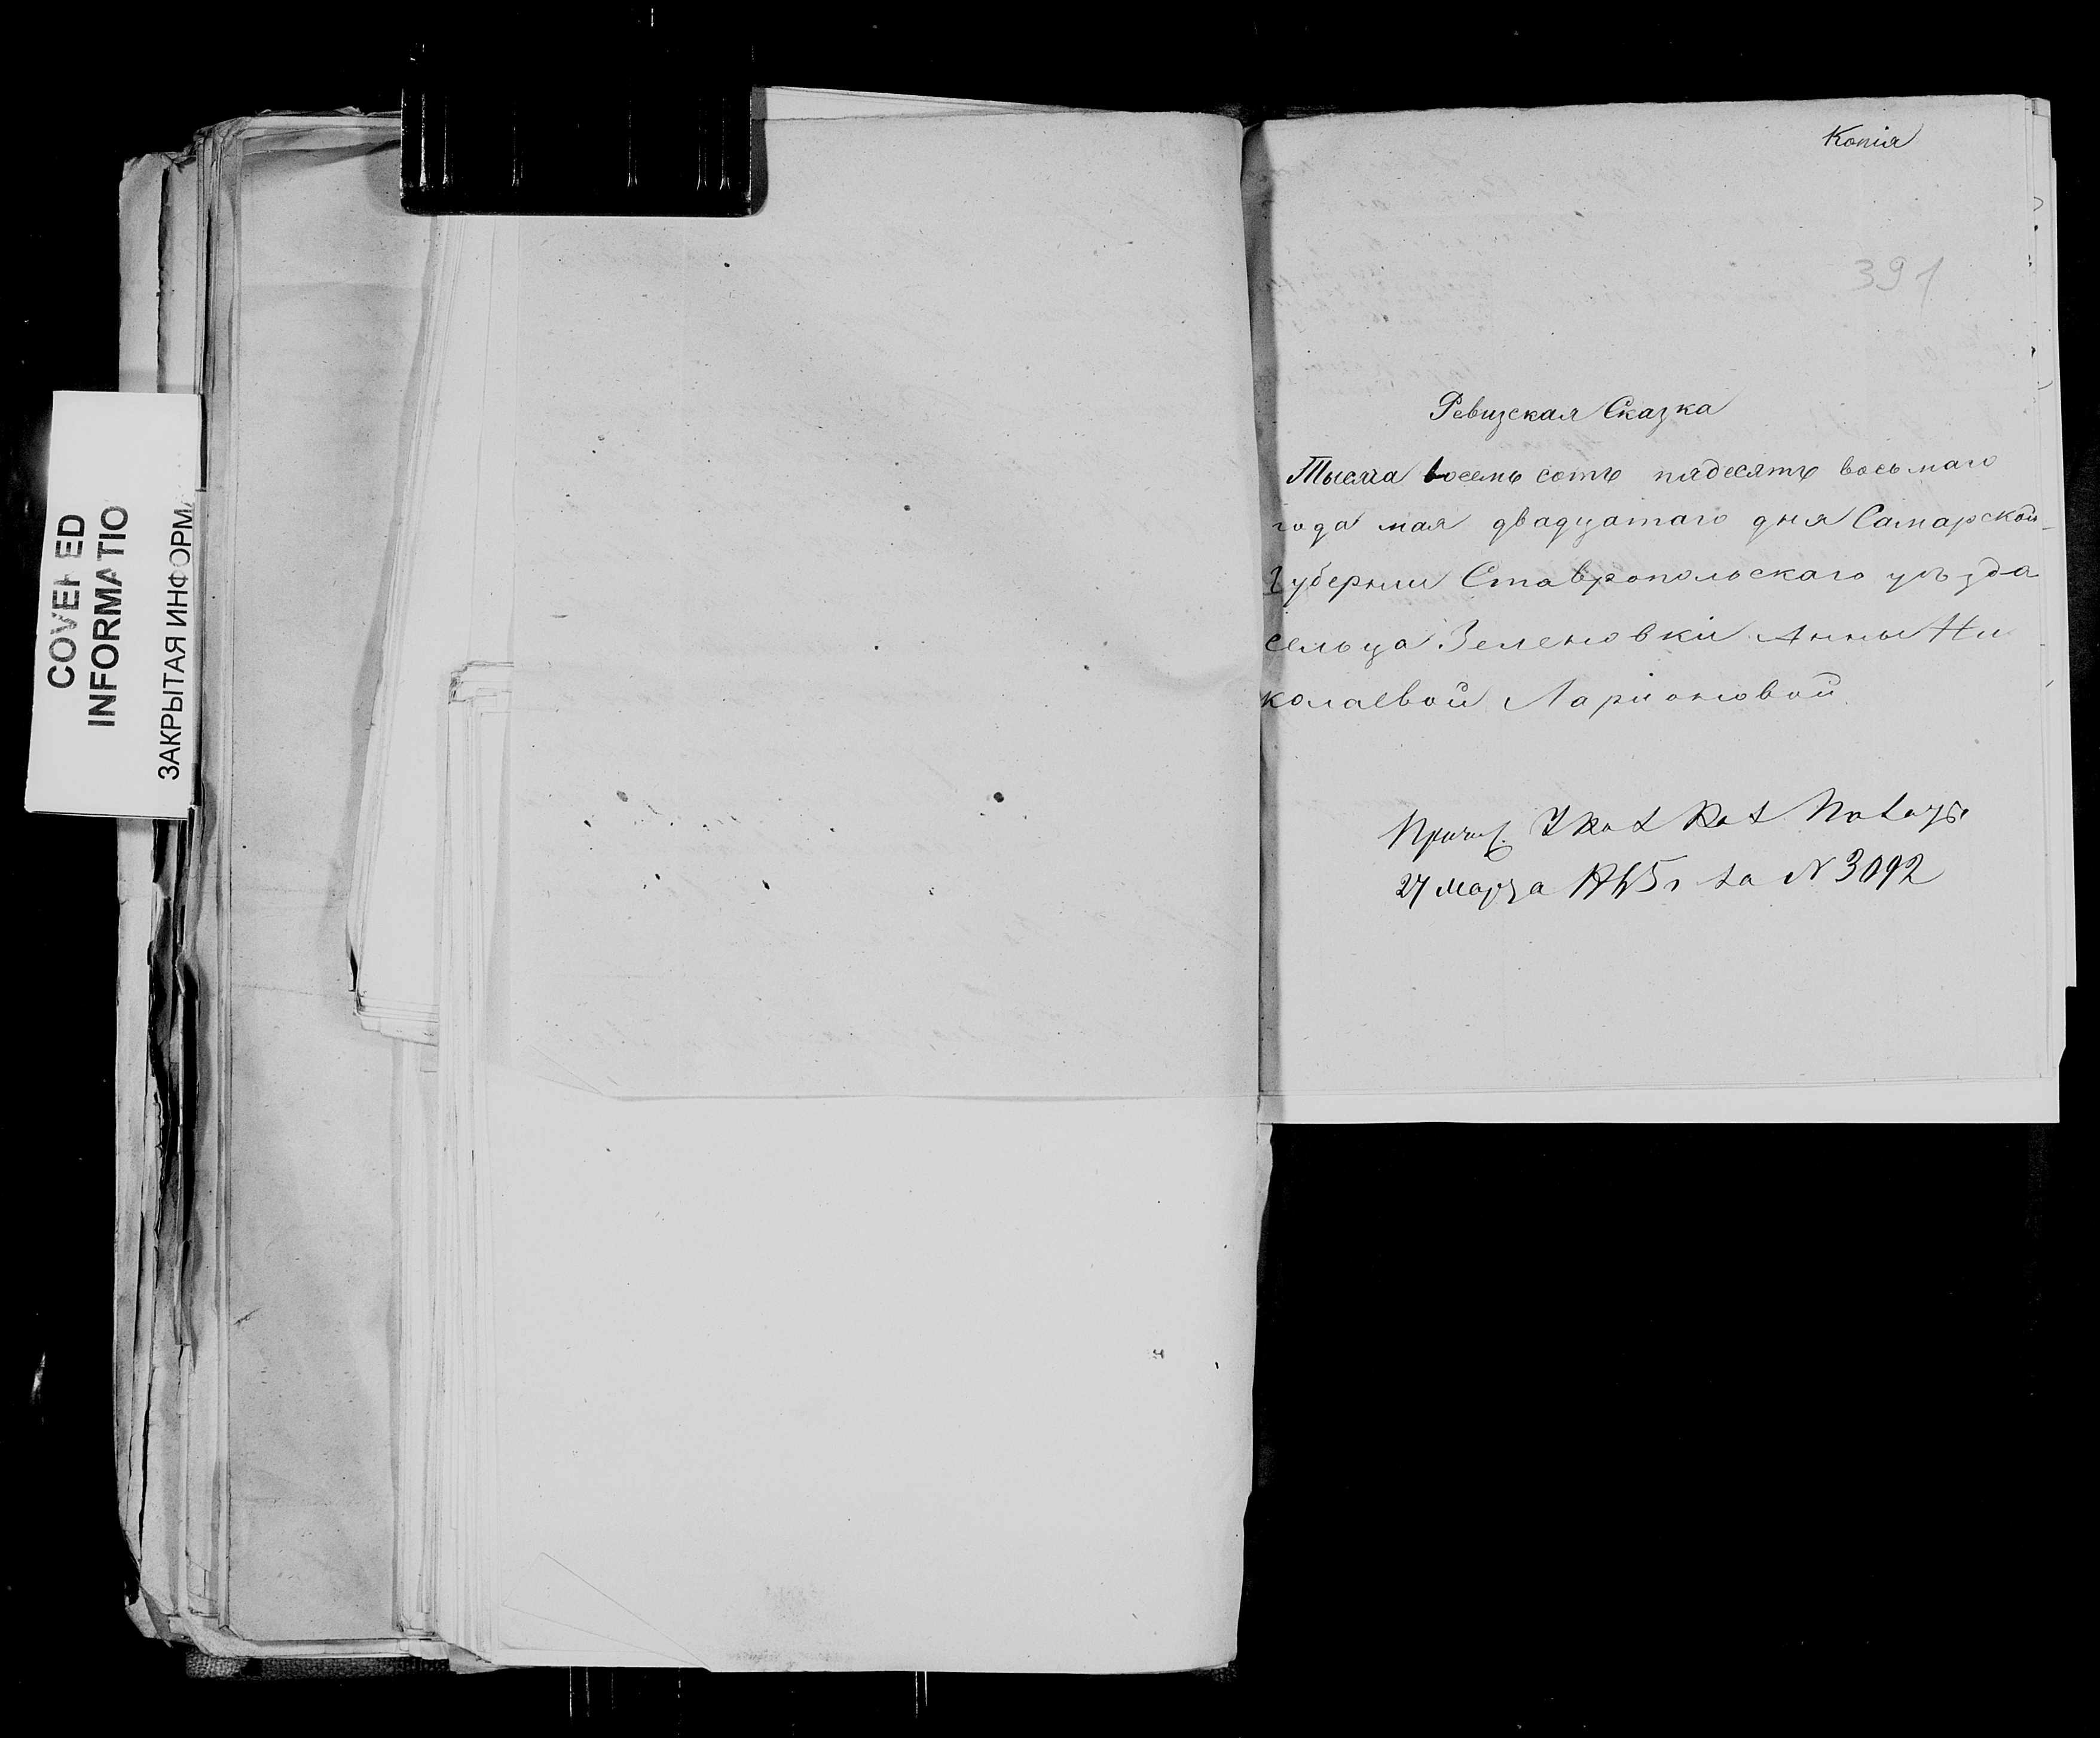 COVERED
INFORMATIO
ЗАКРЫТАЯ ИНФОРМА
Копія
391
Ревизская Сказка
Тысяча восемь сотъ пядесятъ восьмаго
года мая двадцатаго дня Самарской
Губерніи Ставропольскаго уѣзда
сельца Зеленовки Анны Ни
колаевой Ларіоновой
27 марта за N 3092